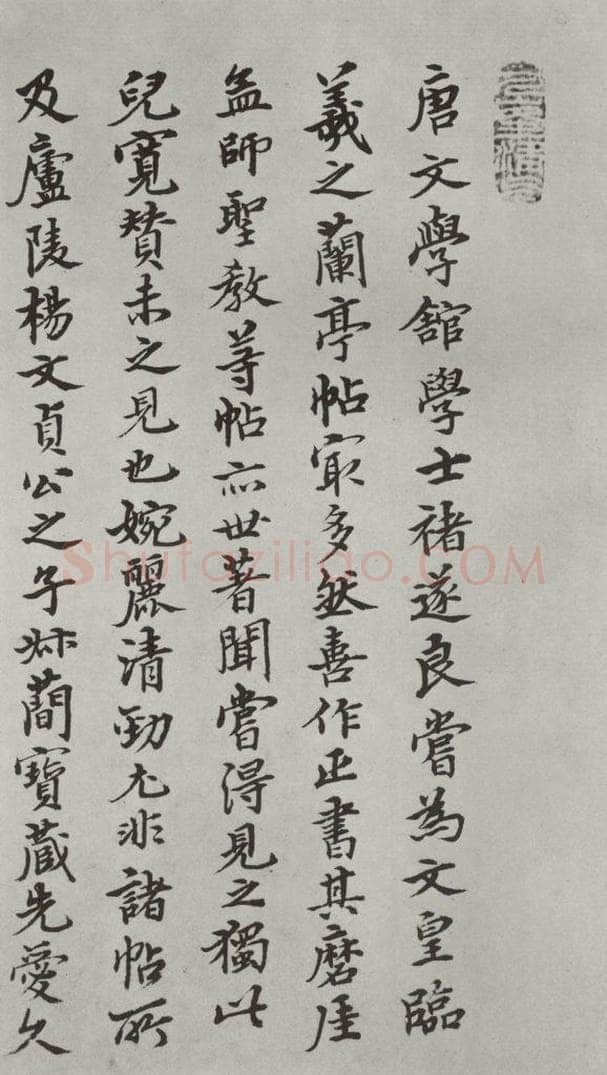 唐文學舘學士褚遂良嘗為文皇臨
羲之蘭亭帖㝡多然善作正書其磨崖
孟師聖教等帖亦世著聞嘗得見之獨此
兒寬賛未之見也婉麗清勁尤非諸帖所
及廬陵楊文貞公之子叔蕳寶藏先愛久
Shufaziliao.COM